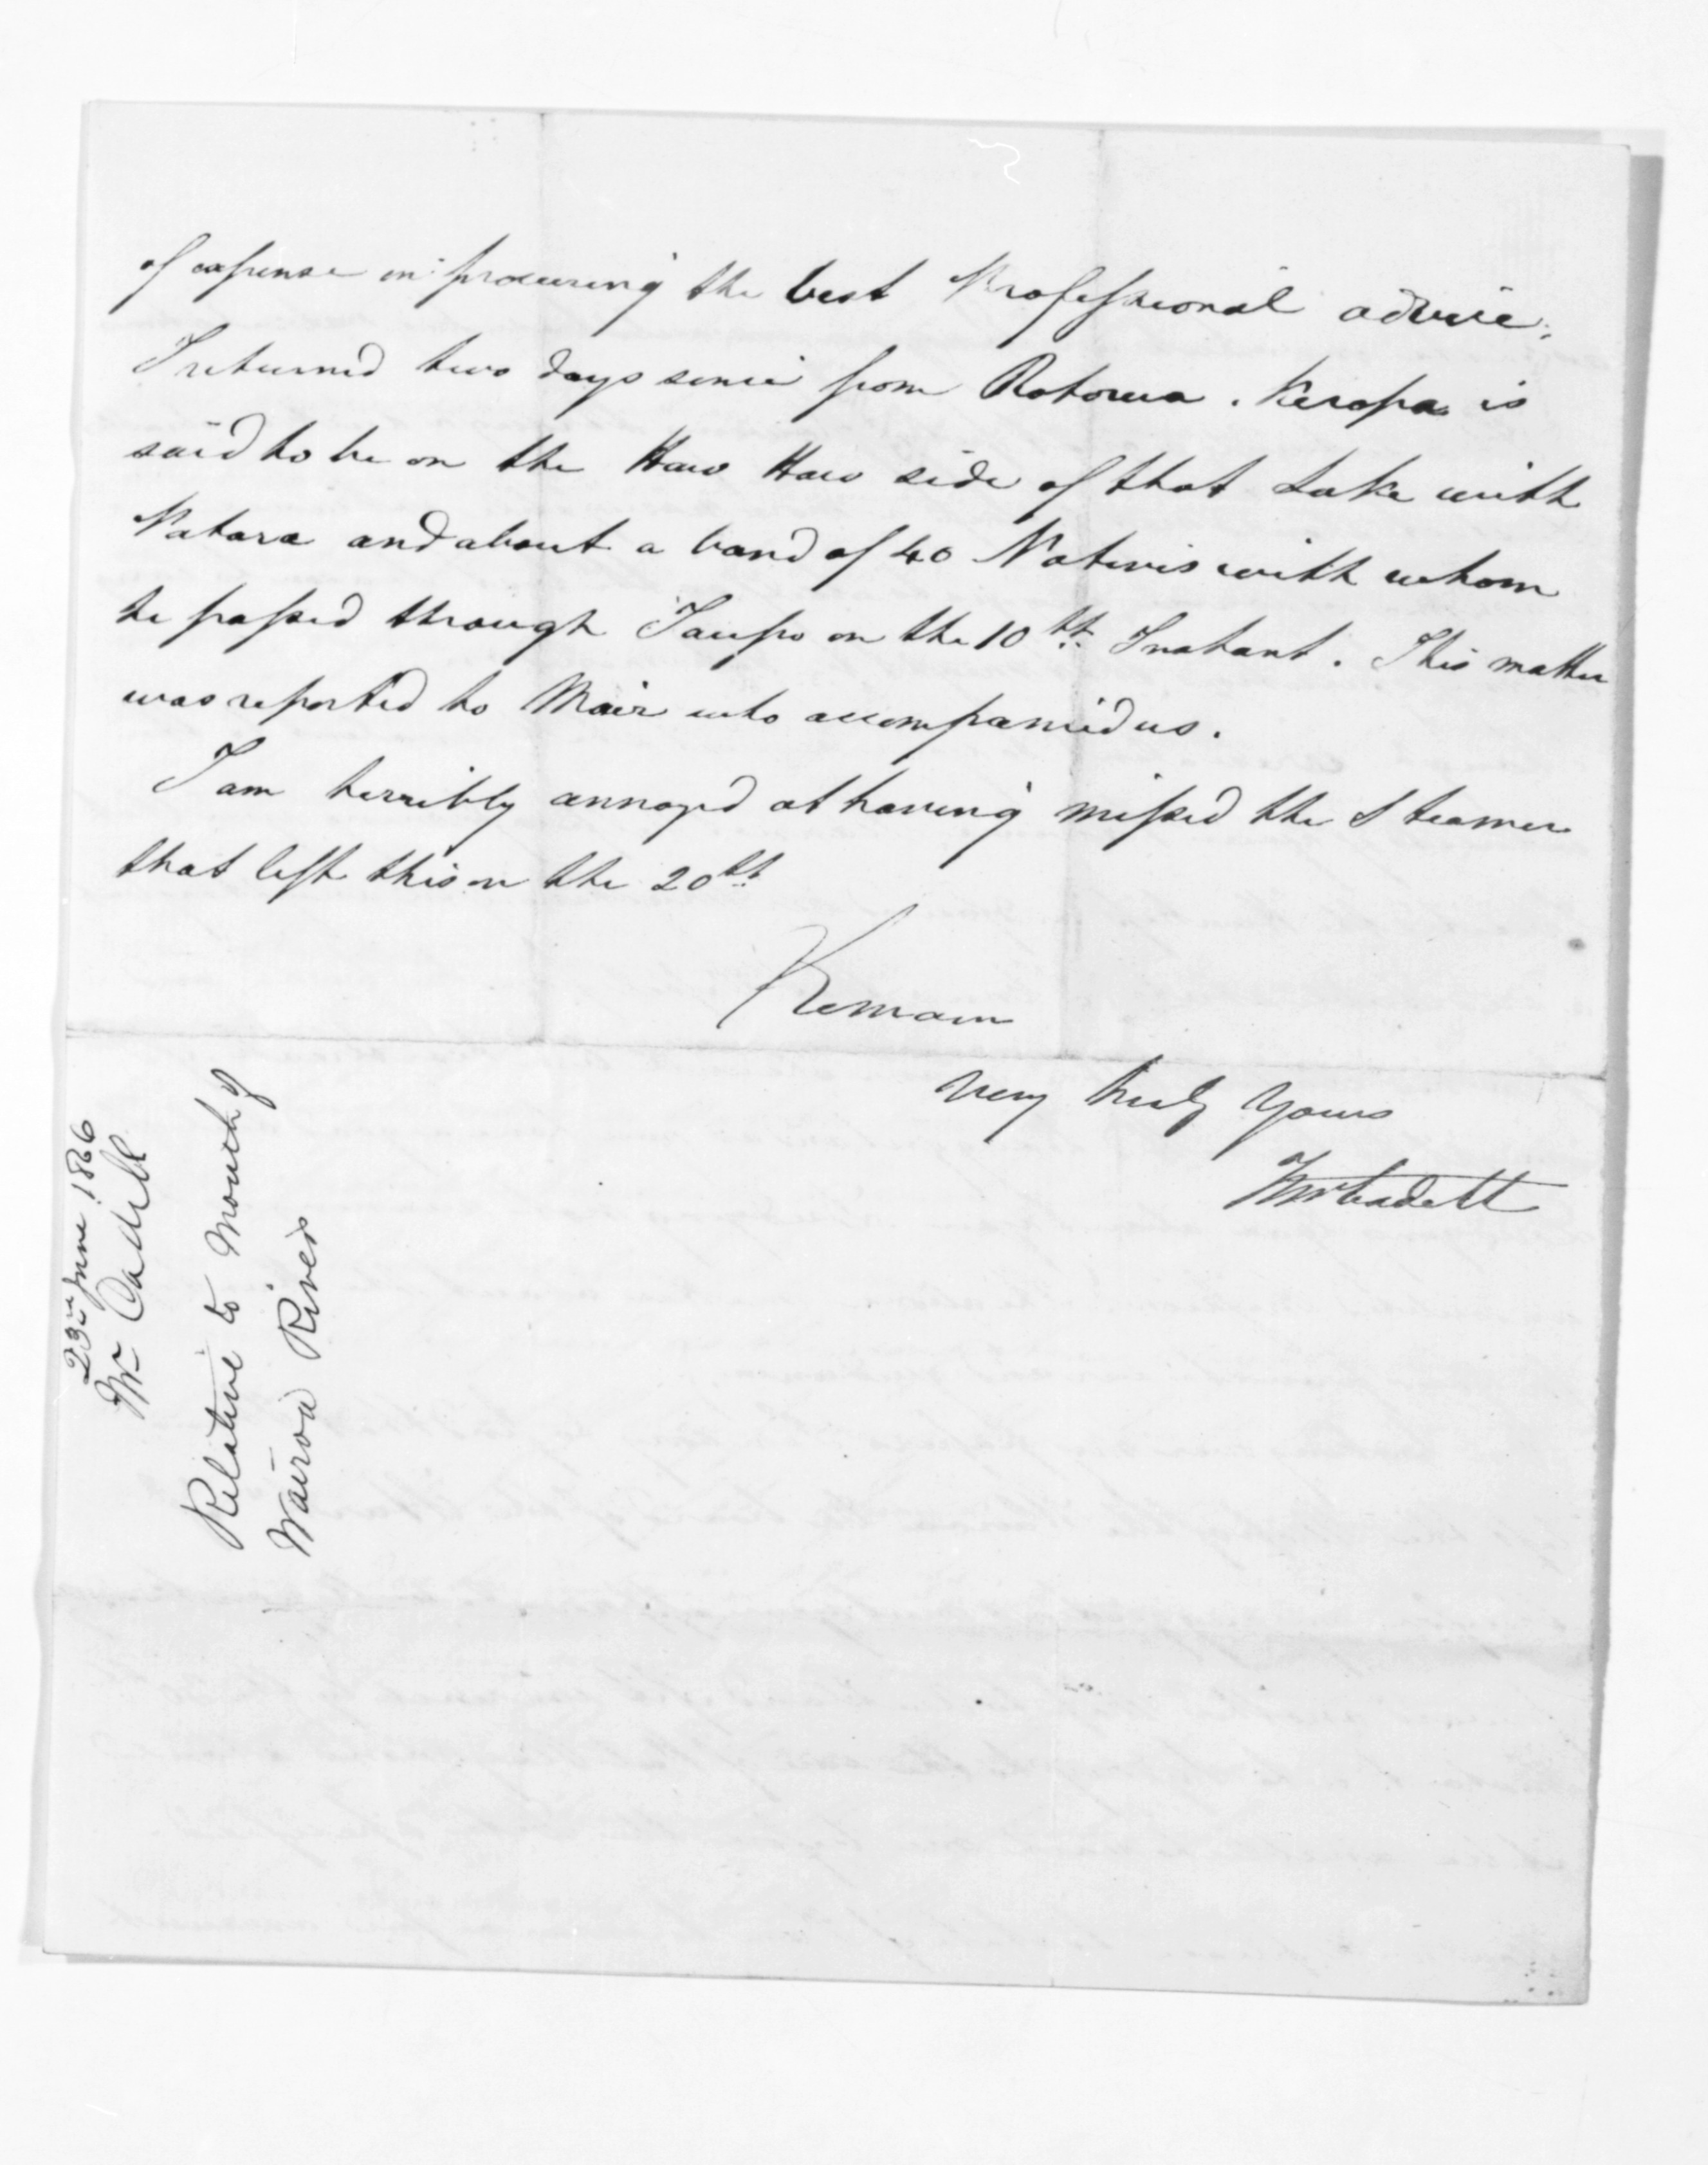 of expense in procuring the best Professional advice.
I returned two days since from Rotorua. Keropa is
said to be on the Hau Hau side of that Lake with
Patara and about a band of 40 Natives with whom
he passed through Taupo on the 10th Instant. This matter
was reported to Mair who accompanied us.
I am terribly annoyed at having missed the Steamer
that left this on the 20th
Remain
very truly yours
Cadell
23rd June 1866
Mr Cadell
Relative to Mouth of
Wairoa River